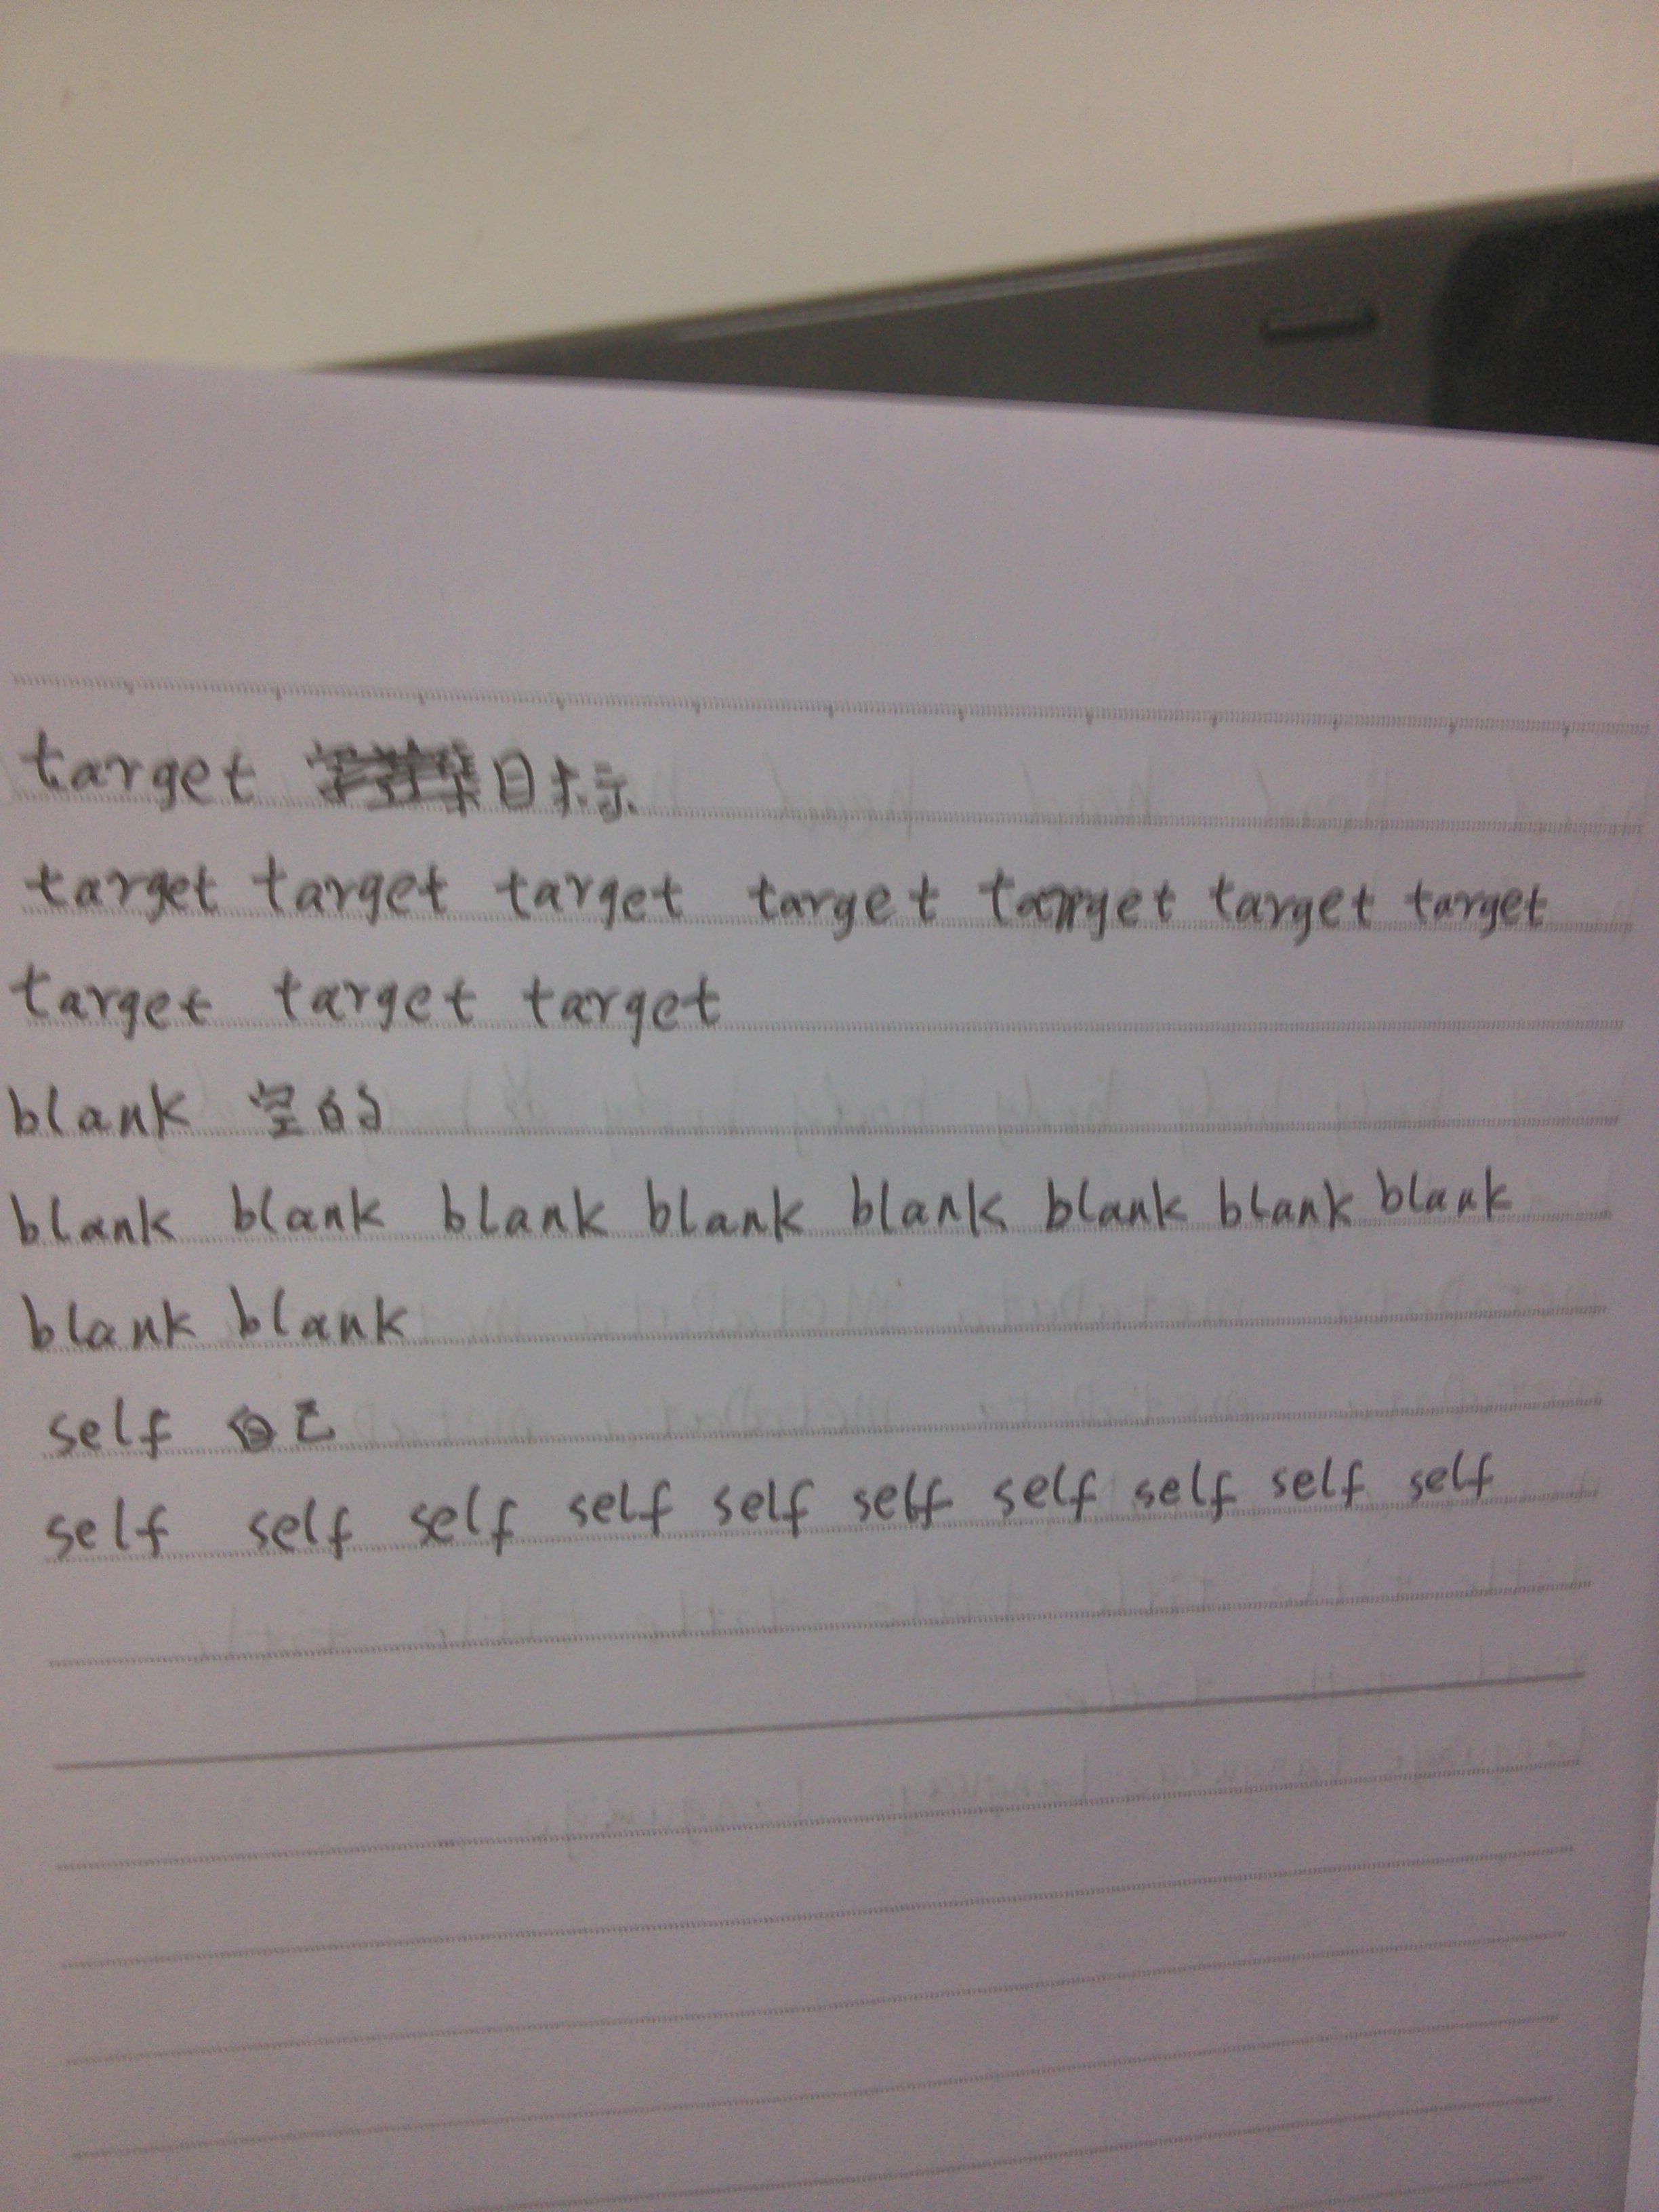 target 目标
target target target target target target target
target target target
blank 空的
blank blank blank blank blank blank blank blank
blank blank
self 自己
self self self self self self self self self self